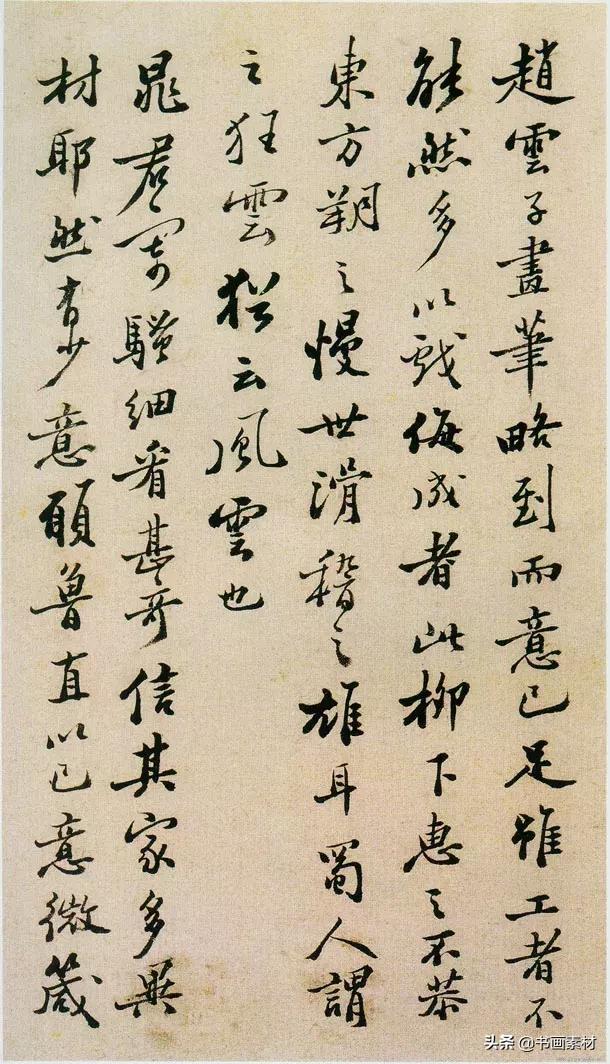 趙雲子畫筆略到而意已足雖工者不
能然多以戲侮成者此柳下惠之不恭
東方朔之慢世滑稽之雄耳蜀人謂
之狂雲猶云風雲也
晁君寄騷細看甚奇信其家多異
材耶然有少意願魯直以己意微箴
头条 @书画素材